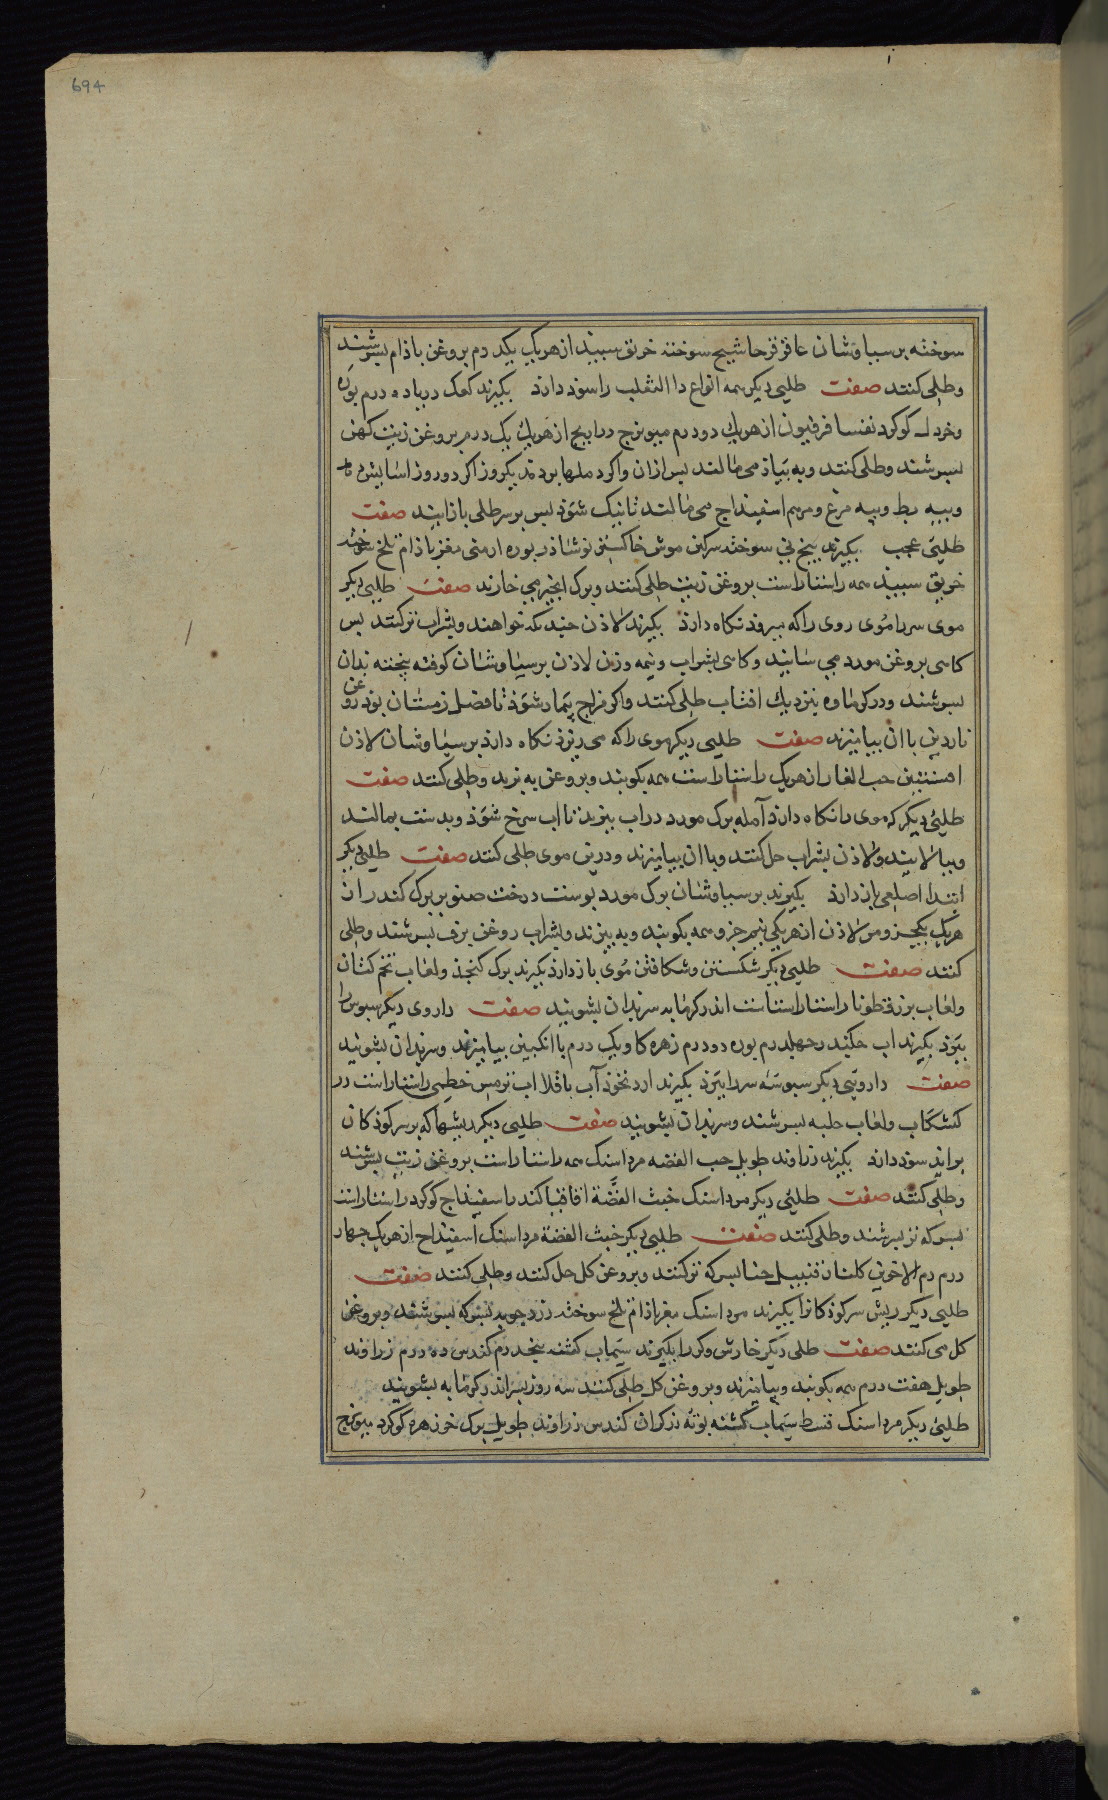 694
سوخته برسیاوشان عاقرقرحا شیح سوخته خربق سپید از هر یک یکدرم بروغن باذام بسرشند
وطلی کنند صفت طلیی دیکر همه انواع دا الثعلب را سوذ دارذ بکیرند کفک دریا ده درم بوره
وخردل کوکرد ثفسا فرفیون از هر یک دو درم میویزج ذراریح از هر یک یک درم بروغن زیت کهن
بسرشند وطلی کنند وبه پیاز می مالند پس ازان واکر دملها بردمد یکروز اکر دو روز اسایش دهد
وبپیه بط وپیه مرغ ومرهم اسفیداج می مالند تا نیک شوذ پس بر سر طلی باز ایند صفت
طلیی عجب بکیرند بیخ نی سوخته سرکین موش خاکستر نوشاذر بوره ارمنی مغز باذام تلخ سوخته
خربق سپیذ همه راستا راست بروغن زیت طلی کنند وبرک انجیر می خارند صفت طلیی دیکر
موی سر را موی روی را که میروذ نکاه دارذ بکیرند لاذن چند که خواهند وبشراب تر کنند پس
کاهی بروغن مورد می سایند وکاهی بشراب ونیمه وزن لاذن برسیاوشان کوفته بیخته بدان
بسرشند ودر کرماوه نیزدیک افتاب طلی کنند واکر مزاج بیمار شوذ تا فصل زمستان بوذ روغن
ناردین باان بیامیزند صفت طلیی دیکر موی را که می ریزد نکاه دارذ برسیاوشان لاذن
افسنتین حب الغار از هر یک راستا راست همه بکوبند وبروغن به بزند وطلی کنند صفت
طلیی دیکر که موی را نکاه دارذ آمله برک مورد در اب بپزند تا اب سرخ شوذ وبدست بمالند
وبپالایند ولاذن بشراب حل کنند وباان بیامیزند ودر بن موی طلی کنند صفت طلیی دیکر
ابتدا اصلعی باز دارذ بکیرند برسیاوشان برک مورد پوست درخت صنوبر برک کندر از
هر یک یکجزو مر لاذن از هر یکی نیم جزو همه بکوبند وبه بیزند وبشراب روغن ترب بسرشند وطلی
کنند صفت طلیی دیکر شکستن وشکافتن موی باز دارذ بکیرند برک کنجذ ولعاب تخم کتان
ولعاب بزرقطونا راستا راست اندر کرمابه سر بدان بشویند صفت داروی دیکر سبوس را
ببرذ بکیرند اب چکند چهل درم بوره دو درم زهره کاو یک درم با انکبین بیامیزند وسر بدان بشویند
صفت دارویی دیکر سبوسه سر را ببرذ بکیرند ارد نخوذ آب باقلا اب ترمس خطمی راستا راست در
کشکاب ولعاب حلبه بسرشند وسر بدان بشویند صفت طلیی دیکر ریشها که بر سر کوذکان
براید سوذ دارذ بکیرند زراوند طویل خبث الفضه مرداسنک همه راستا راست بروغن زیت بسرشند
وطلی کنند صفت طلیی دیکر مرداسنک خبث الفضة اقاقیا کندر اسفیذاج کوکرد راستا راست
بسرکه تر بسرشند وطلی کنند صفت طلیی دیکر خبث الفضة مرداسنک اسفیذاج از هر یک چهار
درم دم الاخوین کلنار قنبیل حنا بسرکه تر کنند وبروغن کل حل کنند وطلی کنند صفت
طلیی دیکر ریش سر کوذکان را بکیرند مرداسنک مغز باذام تلخ سوخته زردچوبه بسرکه بسرشند وبروغن
کل می کنند صفت طلی دیکر خارش وکر را بکیرند سیماب کشته پنجدرم کندس ده درم زراوند
طویل هفت درم همه بکوبند وبیامیزند وبروغن کل طلی کنند سه روز پس اندر کرمابه بشویند
طلیی دیکر مرداسنک قسط سیماب کشته بوته زرکران کندس زراوند طویل برک خرزهره کوکرد میویزج